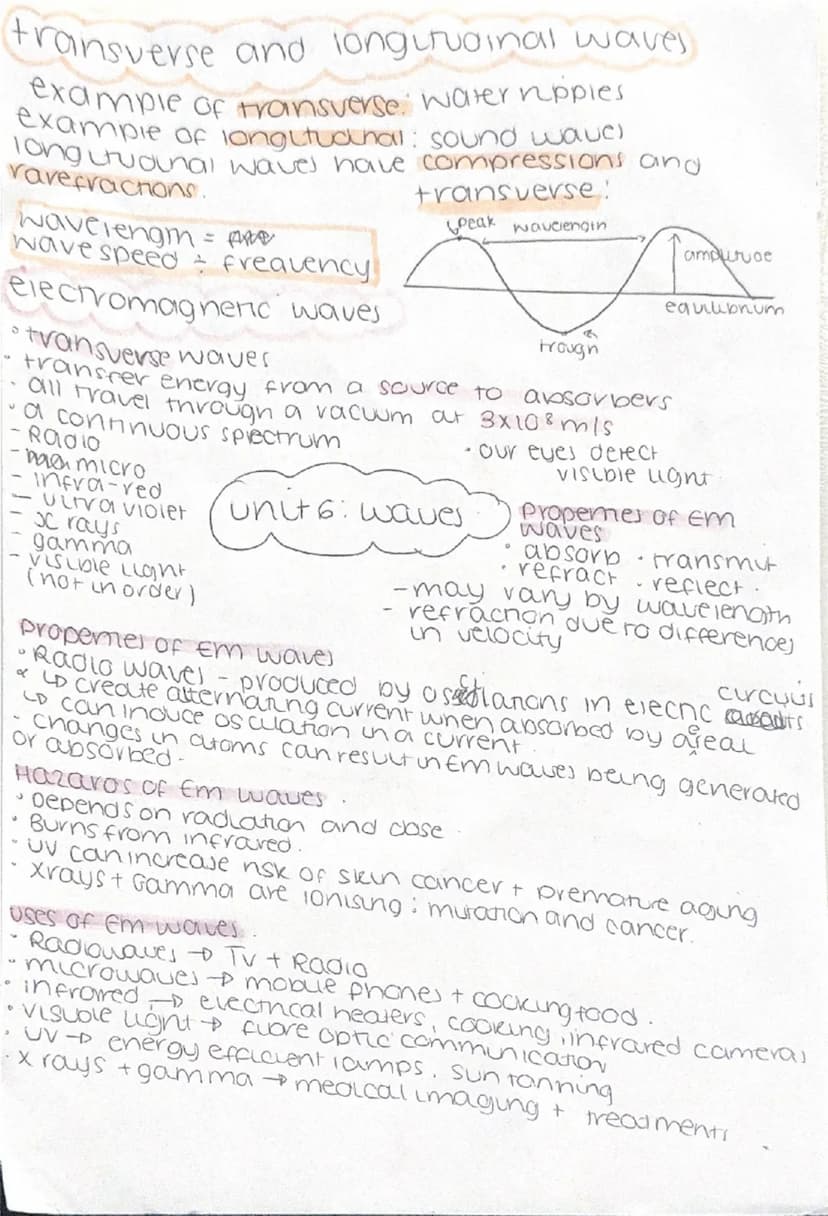 transverse and longitudinal waves
example of transverse: water ripples
example of longitudinal: sound waves
longitudinal waves have compressions and
rarefractions.
transverse:
wavelength =
wavespeed ÷ frequency
peak wavelength
amplitude
equilibrium
trough
electromagnetic waves
• transverse waves
• transfer energy from a source to absorbers
• all travel through a vacuum at 3x10⁸ m/s
• a continuous spectrum
- Radio
- micro
- infra-red
- ultra violet
- x rays
- gamma
- visible light
(not in order)
• our eyes detect
visible light
unit 6: waves
Properties of EM
waves
• absorb • transmit
• refract • reflect.
- may vary by wavelength
- refraction due to differences
in velocity
properties of EM waves
• Radio waves - produced by oscillations in elecric circuits
↳ create alternating current when absorbed by areal
↳ can induce osculation in a current.
- changes in atoms can result in EM waves being generated
or absorbed.
Hazards of EM waves.
• Depends on radiation and dose
• Burns from infrared.
• UV can increase risk of skin cancer + premature aging
• xrays + Gamma are ionising: mutation and cancer.
uses of EM waves.
• Radiowaves → TV + Radio
• microwaves → mobile phones + cooking food.
• infrared → electrical heaters, cooking, infrared cameras
• visible light → fibre optic communication
• UV → energy efficient lamps, sun tanning
• x rays + gamma → medical imaging + treatments